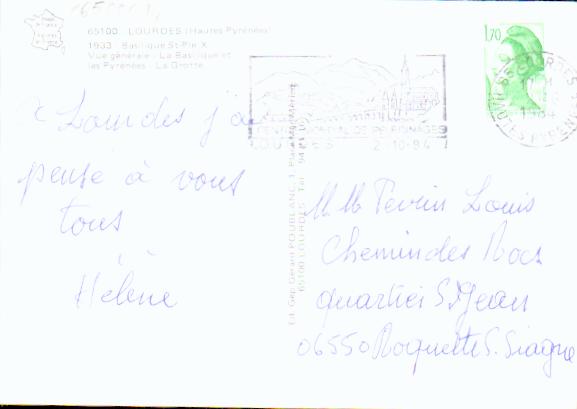 65100. LOURDES (Hautes Pyrénées)
1933 Basilique St-Pie X
Vue générale - La Basilique et
les Pyrénées - La Grotte
1,70
LOURDES 2-10-84
1984
à Lourdes j'ai
pensé à vous
tous
Hélène
Ed. Gép. Gérard POUBLANC, 1, Place Mgr
65100 LOURDES - Tél. 94
M. Mme Louis
Chemin des Rocs
quartier St Jean
06550 Roquette S. Siagne